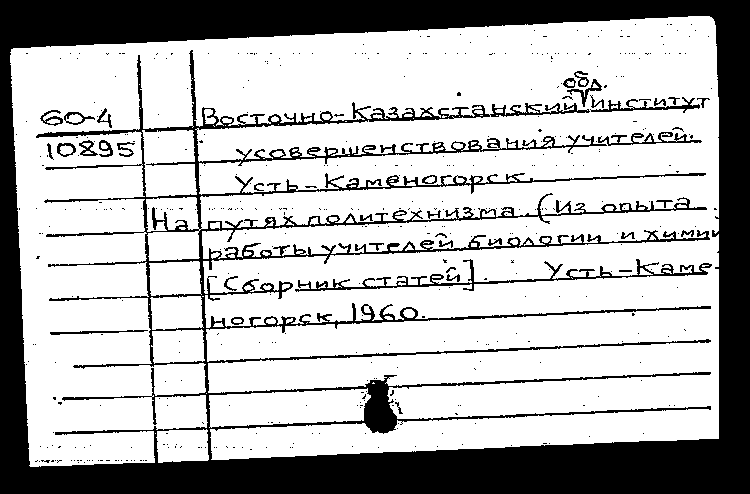 обл.
60-4 Восточно-Казахстанский институт
10895 усовершенствования учителей.
Усть-Каменогорск.
На путях политехнизма. (Из опыта
работы учителей биологии и химии
[Сборник статей]. Усть-Каме-
ногорск, 1960.